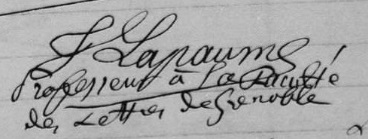 J Lapaume
Professeur à la Faculté
des Lettres de Grenoble